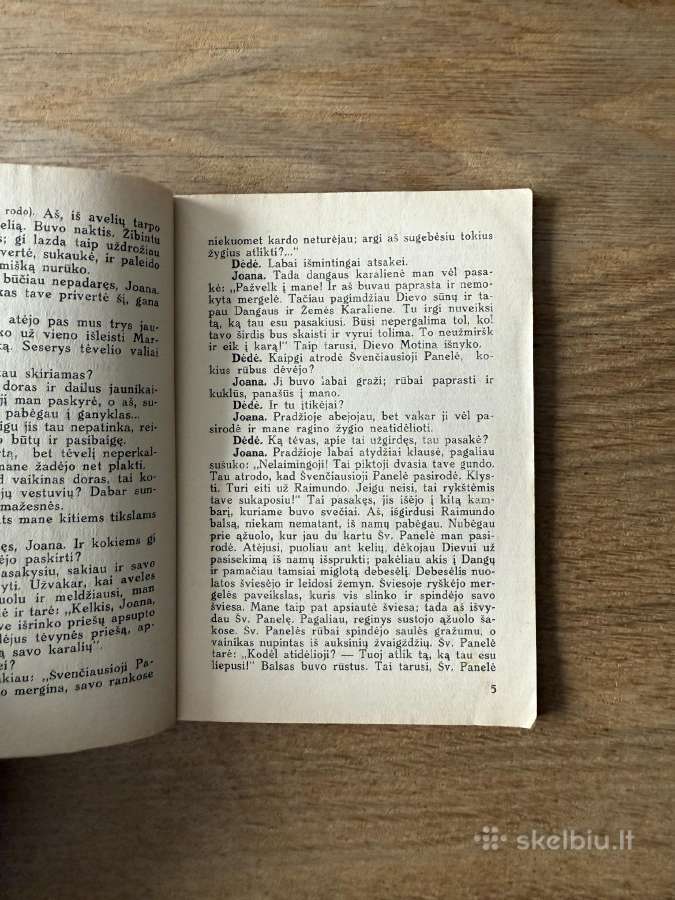 rodo). Aš, iš avelių tarpo
elią. Buvo naktis. Žibintu
s; gi lazdą taip uždrožiau
vertė, sukaukė, ir paleido
mišką nurūko.
būčiau nepadaręs, Joana.
kas tave privertė šį, gana
atėjo pas mus trys jau-
ko už vieno išleisti Mar-
ką. Seserys tėvelio valiai
au skiriamas?
doras ir dailus jaunikai-
jį man paskyrė, o aš, su-
pabėgau į ganyklas...
eigu jis tau nepatinka, rei-
o būtų ir pasibaigę.
rtą, bet tėvelį neperkal-
mane žadėjo net plakti.
d vaikinas doras, tai ko-
jų vestuvių? Dabar sun-
mažesnės.
ts mane kitiems tikslams
ęs, Joana. Ir kokiems gi
ėjo paskirti?
asakysiu, sakiau ir savo
yti. Užvakar, kai aveles
uolu ir meldžiausi, man
ir tarė: „Kelkis, Joana,
ve išrinko priešų apsupto
dėjus tėvynės priešą, ap-
ą savo karalių".
ei?
kiau: „Švenčiausioji Pa-
o mergina, savo rankose
niekuomet kardo neturėjau; argi aš sugebėsiu tokius
žygius atlikti?..."
Dėdė. Labai išmintingai atsakei.
Joana. Tada dangaus karalienė man vėl pasa-
kė: „Pažvelk į mane! Ir aš buvau paprasta ir nemo-
kyta mergelė. Tačiau pagimdžiau Dievo sūnų ir ta-
pau Dangaus ir Žemės Karaliene. Tu irgi nuveiksi
tą, ką tau esu pasakiusi. Būsi nepergalima tol, kol
tavo širdis bus skaisti ir vyrui tolima. To neužmiršk
ir eik į karą!" Taip tarusi, Dievo Motina išnyko.
Dėdė. Kaipgi atrodė Švenčiausioji Panelė, ko-
kius rūbus dėvėjo?
Joana. Ji buvo labai graži; rūbai paprasti ir
kuklūs, panašūs į mano.
Dėdė. Ir tu įtikėjai?
Joana. Pradžioje abejojau, bet vakar ji vėl pa-
sirodė ir mane ragino žygio neatidėlioti.
Dėdė. Ką tėvas, apie tai užgirdęs, tau pasakė?
Joana. Pradžioje labai atydžiai klausė, pagaliau
sušuko: „Nelaimingoji! Tai piktoji dvasia tave gundo.
Tau atrodo, kad Švenčiausioji Panelė pasirodė. Klys-
ti. Turi eiti už Raimundo. Jeigu neisi, tai rykštėmis
tave sukaposiu!" Tai pasakęs, jis išėjo į kitą kam-
barį, kuriame buvo svečiai. Aš, išgirdusi Raimundo
balsą, niekam nematant, iš namų pabėgau. Nubėgau
prie ąžuolo, kur jau du kartu Šv. Panelė man pasi-
rodė. Atėjusi, puoliau ant kelių, dėkojau Dievui už
pasisekimą iš namų išsprukti; pakėliau akis į Dangų
ir pamačiau tamsiai miglotą debesėlį. Debesėlis nuo-
latos šviesėjo ir leidosi žemyn. Šviesoje ryškėjo mer-
gelės paveikslas, kuris vis slinko ir spindėjo savo
šviesa. Mane taip pat apsiautė šviesa; tada aš išvy-
dau Šv. Panelę. Pagaliau, reginys sustojo ąžuolo ša-
kose. Šv. Panelės rūbai spindėjo saulės gražumu, o
vainikas nupintas iš auksinių žvaigždžių. Šv. Panelė
tarė: „Kodėl atidėlioji? — Tuoj atlik tą, ką tau esu
liepusi!" Balsas buvo rūstus. Tai tarusi, Šv. Panelė
5
skelbiu.lt